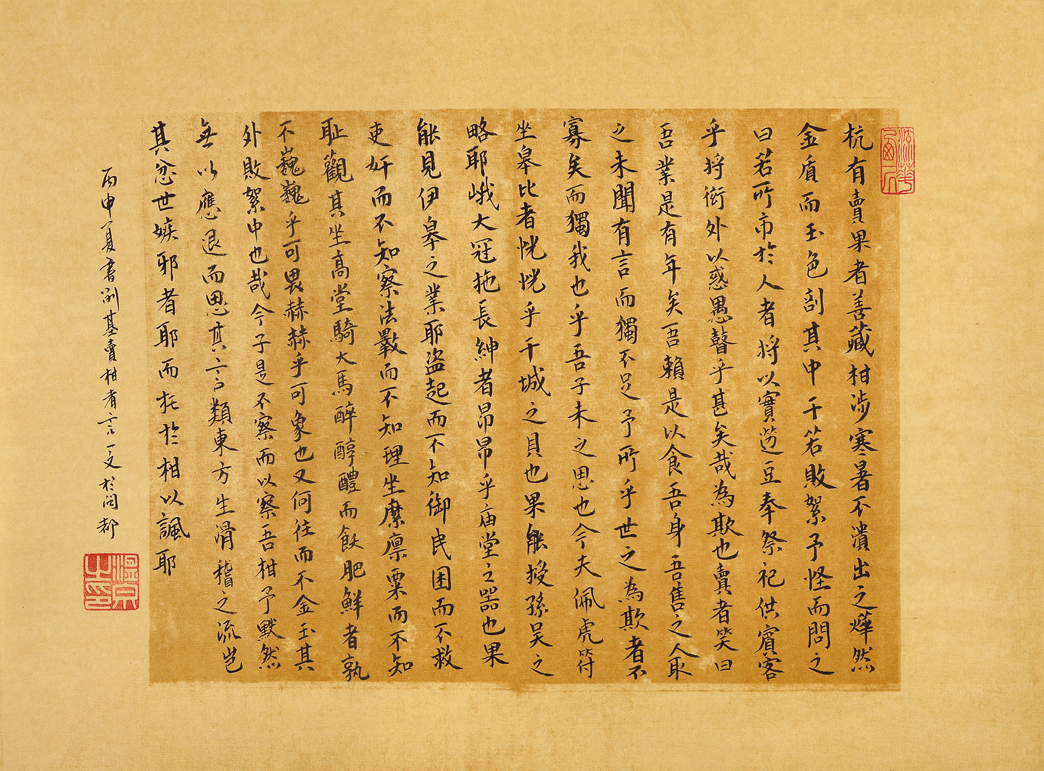 杭有賣果者善藏柑涉寒暑不潰出之燁然
金盾而玉色剖其中干若敗絮予怪而問之
曰若所市於人者將以實籩豆奉祭祀供賓客
乎將衒外以惑愚瞽乎甚矣哉為欺也賣者笑曰
吾業是有年矣吾賴是以食吾身吾售之人取
之未聞有言而獨不足予所乎世之為欺者不
寡矣而獨我也乎吾子未之思也今夫佩虎符
坐皋比者恍恍乎干城之具也果能授孫吳之
略耶峨大冠拖長紳者昂昂乎庙堂之器也果
能見伊皋之業耶盜起而不知御民困而不救
吏奸而不知察法斁而不知理坐縻廩粟而不知
耻觀其坐高堂騎大馬醉醇醴而飫肥鮮者孰
不巍巍乎可畏赫赫乎可象也又何往而不金玉其
外敗絮中也哉今子是不察而以察吾柑予默然
無以應退而思其言類東方生滑稽之流岂
其忿世嫉邪者耶而托於柑以諷耶
丙申夏書劉基賣柑者言一文於閩都